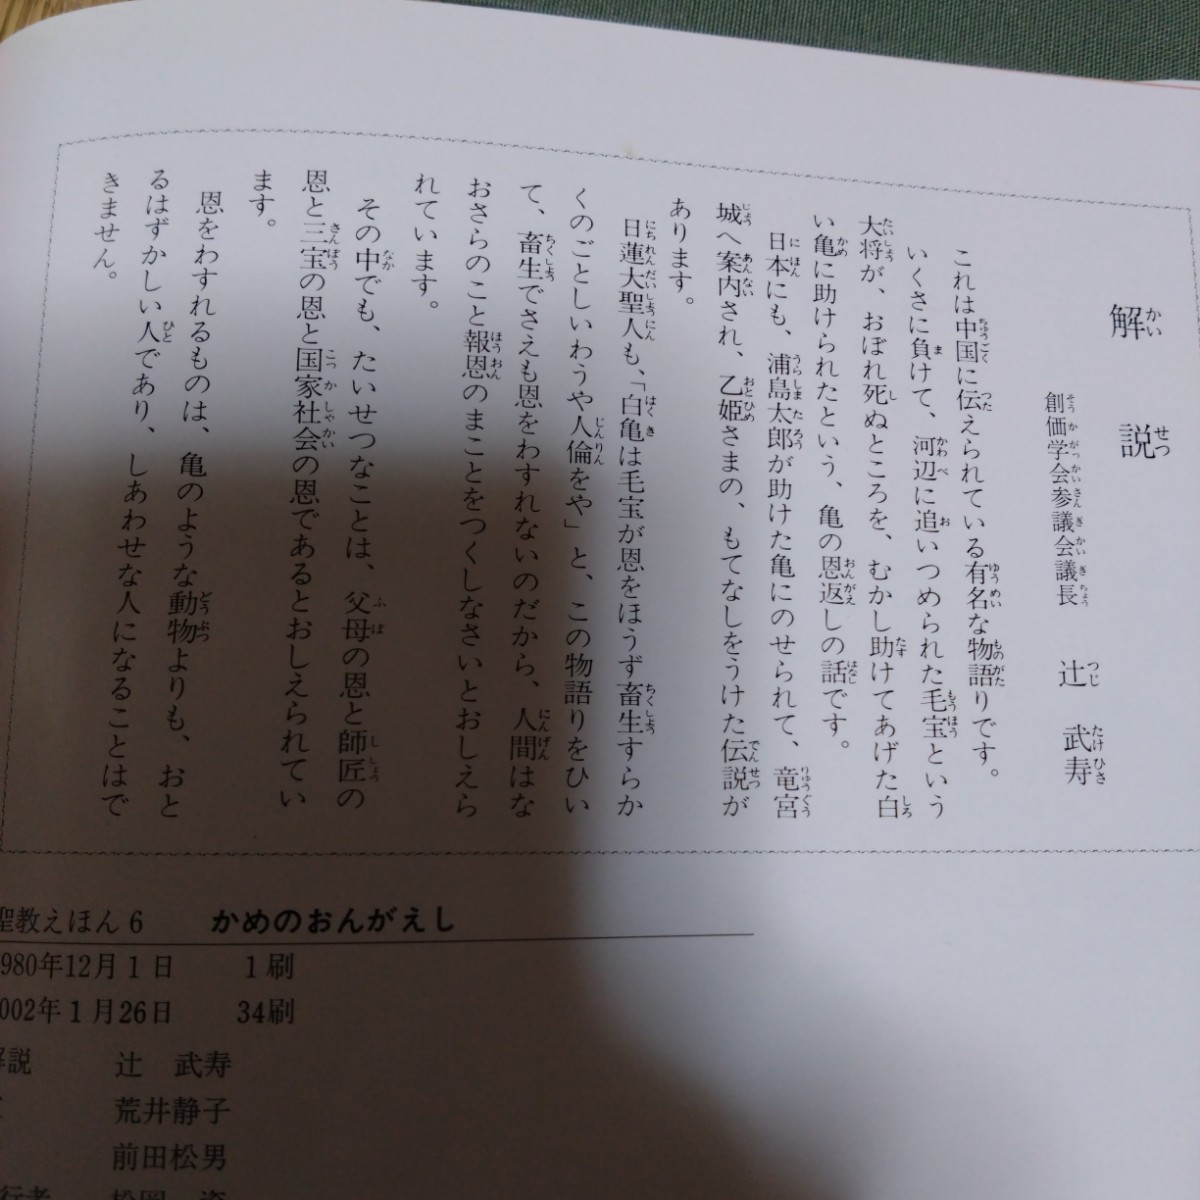 解説
創価学会参議会議長　辻　武寿
これは中国に伝えられている有名な物語りです。
いくさに負けて、河辺に追いつめられた毛宝という
大将が、おぼれ死ぬところを、むかし助けてあげた白
い亀に助けられたという、亀の恩返しの話です。
日本にも、浦島太郎が助けた亀にのせられて、竜宮
城へ案内され、乙姫さまの、もてなしをうけた伝説が
あります。
日蓮大聖人も、「白亀は毛宝が恩をほうず畜生すらか
くのごとしいわうや人倫をや」と、この物語りをひい
て、畜生でさえも恩をわすれないのだから、人間はな
おさらのこと報恩のまことをつくしなさいとおしえら
れています。
その中でも、たいせつなことは、父母の恩と師匠の
恩と三宝の恩と国家社会の恩であるとおしえられてい
ます。
恩をわすれるものは、亀のような動物よりも、おと
るはずかしい人であり、しあわせな人になることはで
きません。
聖教えほん6　かめのおんがえし
980年12月1日　1刷
002年1月26日　34刷
解説　辻　武寿
荒井静子
前田松男
行者　松岡　資